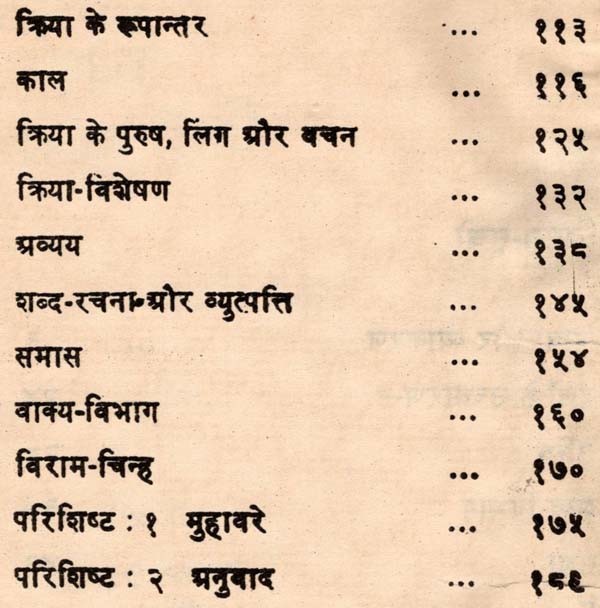 क्रिया के रूपान्तर ... ११३
काल ... ११६
क्रिया के पुरुष, लिंग और वचन ... १२५
क्रिया-विशेषण ... १३२
अव्यय ... १३८
शब्द-रचना-और व्युत्पत्ति ... १४५
समास ... १५४
वाक्य-विभाग ... १६०
विराम-चिन्ह ... १७०
परिशिष्ट : १ मुहावरे ... १७५
परिशिष्ट : २ अनुवाद ... १८६